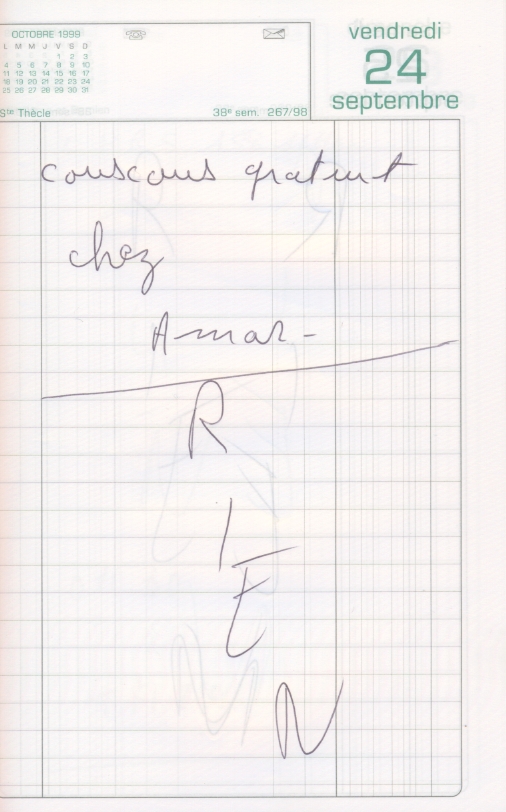 OCTOBRE 1999
L M M J V S D
1 2 3
4 5 6 7 8 9 10
11 12 13 14 15 16 17
18 19 20 21 22 23 24
25 26 27 28 29 30 31
vendredi
24
septembre
Ste Thècle 38e sem. 267/98
couscous gratuit
chez
Amar-
R
I
E
N